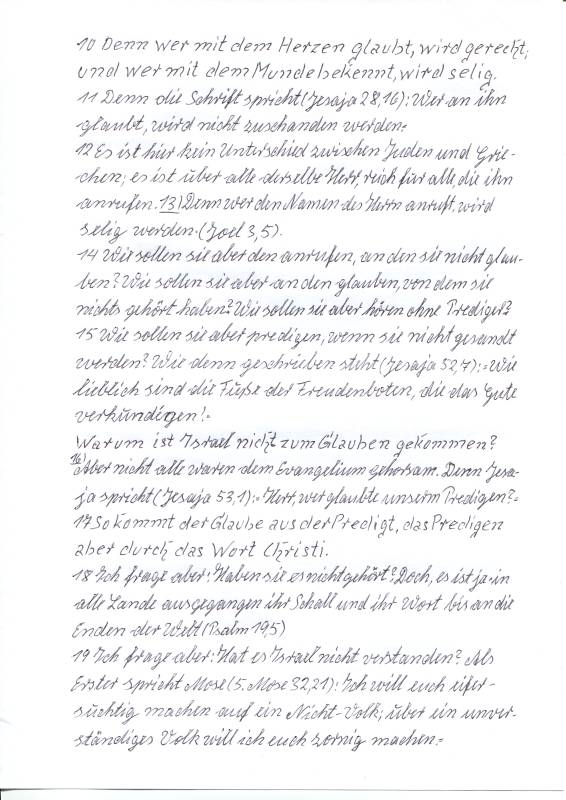 10 Denn wer mit dem Herzen glaubt, wird gerecht;
und wer mit dem Munde bekennt, wird selig.
11 Denn die Schrift spricht (Jesaja 28,16): Wer an ihn
glaubt, wird nicht zuschanden werden.=
12 Es ist hier kein Unterschied zwischen Juden und Grie-
chen; es ist über alle derselbe Herr, reich für alle, die ihn
anrufen. 13) Denn wer den Namen des Herrn anruft, wird
selig werden. (Joel 3,5).
14 Wie sollen sie aber den anrufen, an den sie nicht glau-
ben? Wie sollen sie aber an den glauben, von dem sie
nichts gehört haben? Wie sollen sie aber hören ohne Prediger?
15 Wie sollen sie aber predigen, wenn sie nicht gesandt
werden? Wie denn geschrieben steht (Jesaja 52,7):=Wie
lieblich sind die Füße der Freudenboten, die das Gute
verkündigen!=
Warum ist Israel nicht zum Glauben gekommen?
16) Aber nicht alle waren dem Evangelium gehorsam. Denn Jesa-
ja spricht (Jesaja 53,1):=Herr, wer glaubte unserm Predigen?=
17 So kommt der Glaube aus der Predigt, das Predigen
aber durch das Wort Christi.
18 Ich frage aber: Haben sie es nicht gehört? Doch, es ist ja in
alle Lande ausgegangen ihr Schall und ihr Wort bis an die
Enden der Welt (Psalm 19,5)
19 Ich frage aber: Hat es Israel nicht verstanden? Als
Erster spricht Mose (5. Mose 32,21): Ich will euch eifer-
süchtig machen auf ein Nicht-Volk; über ein unver-
ständiges Volk will ich euch zornig machen.=